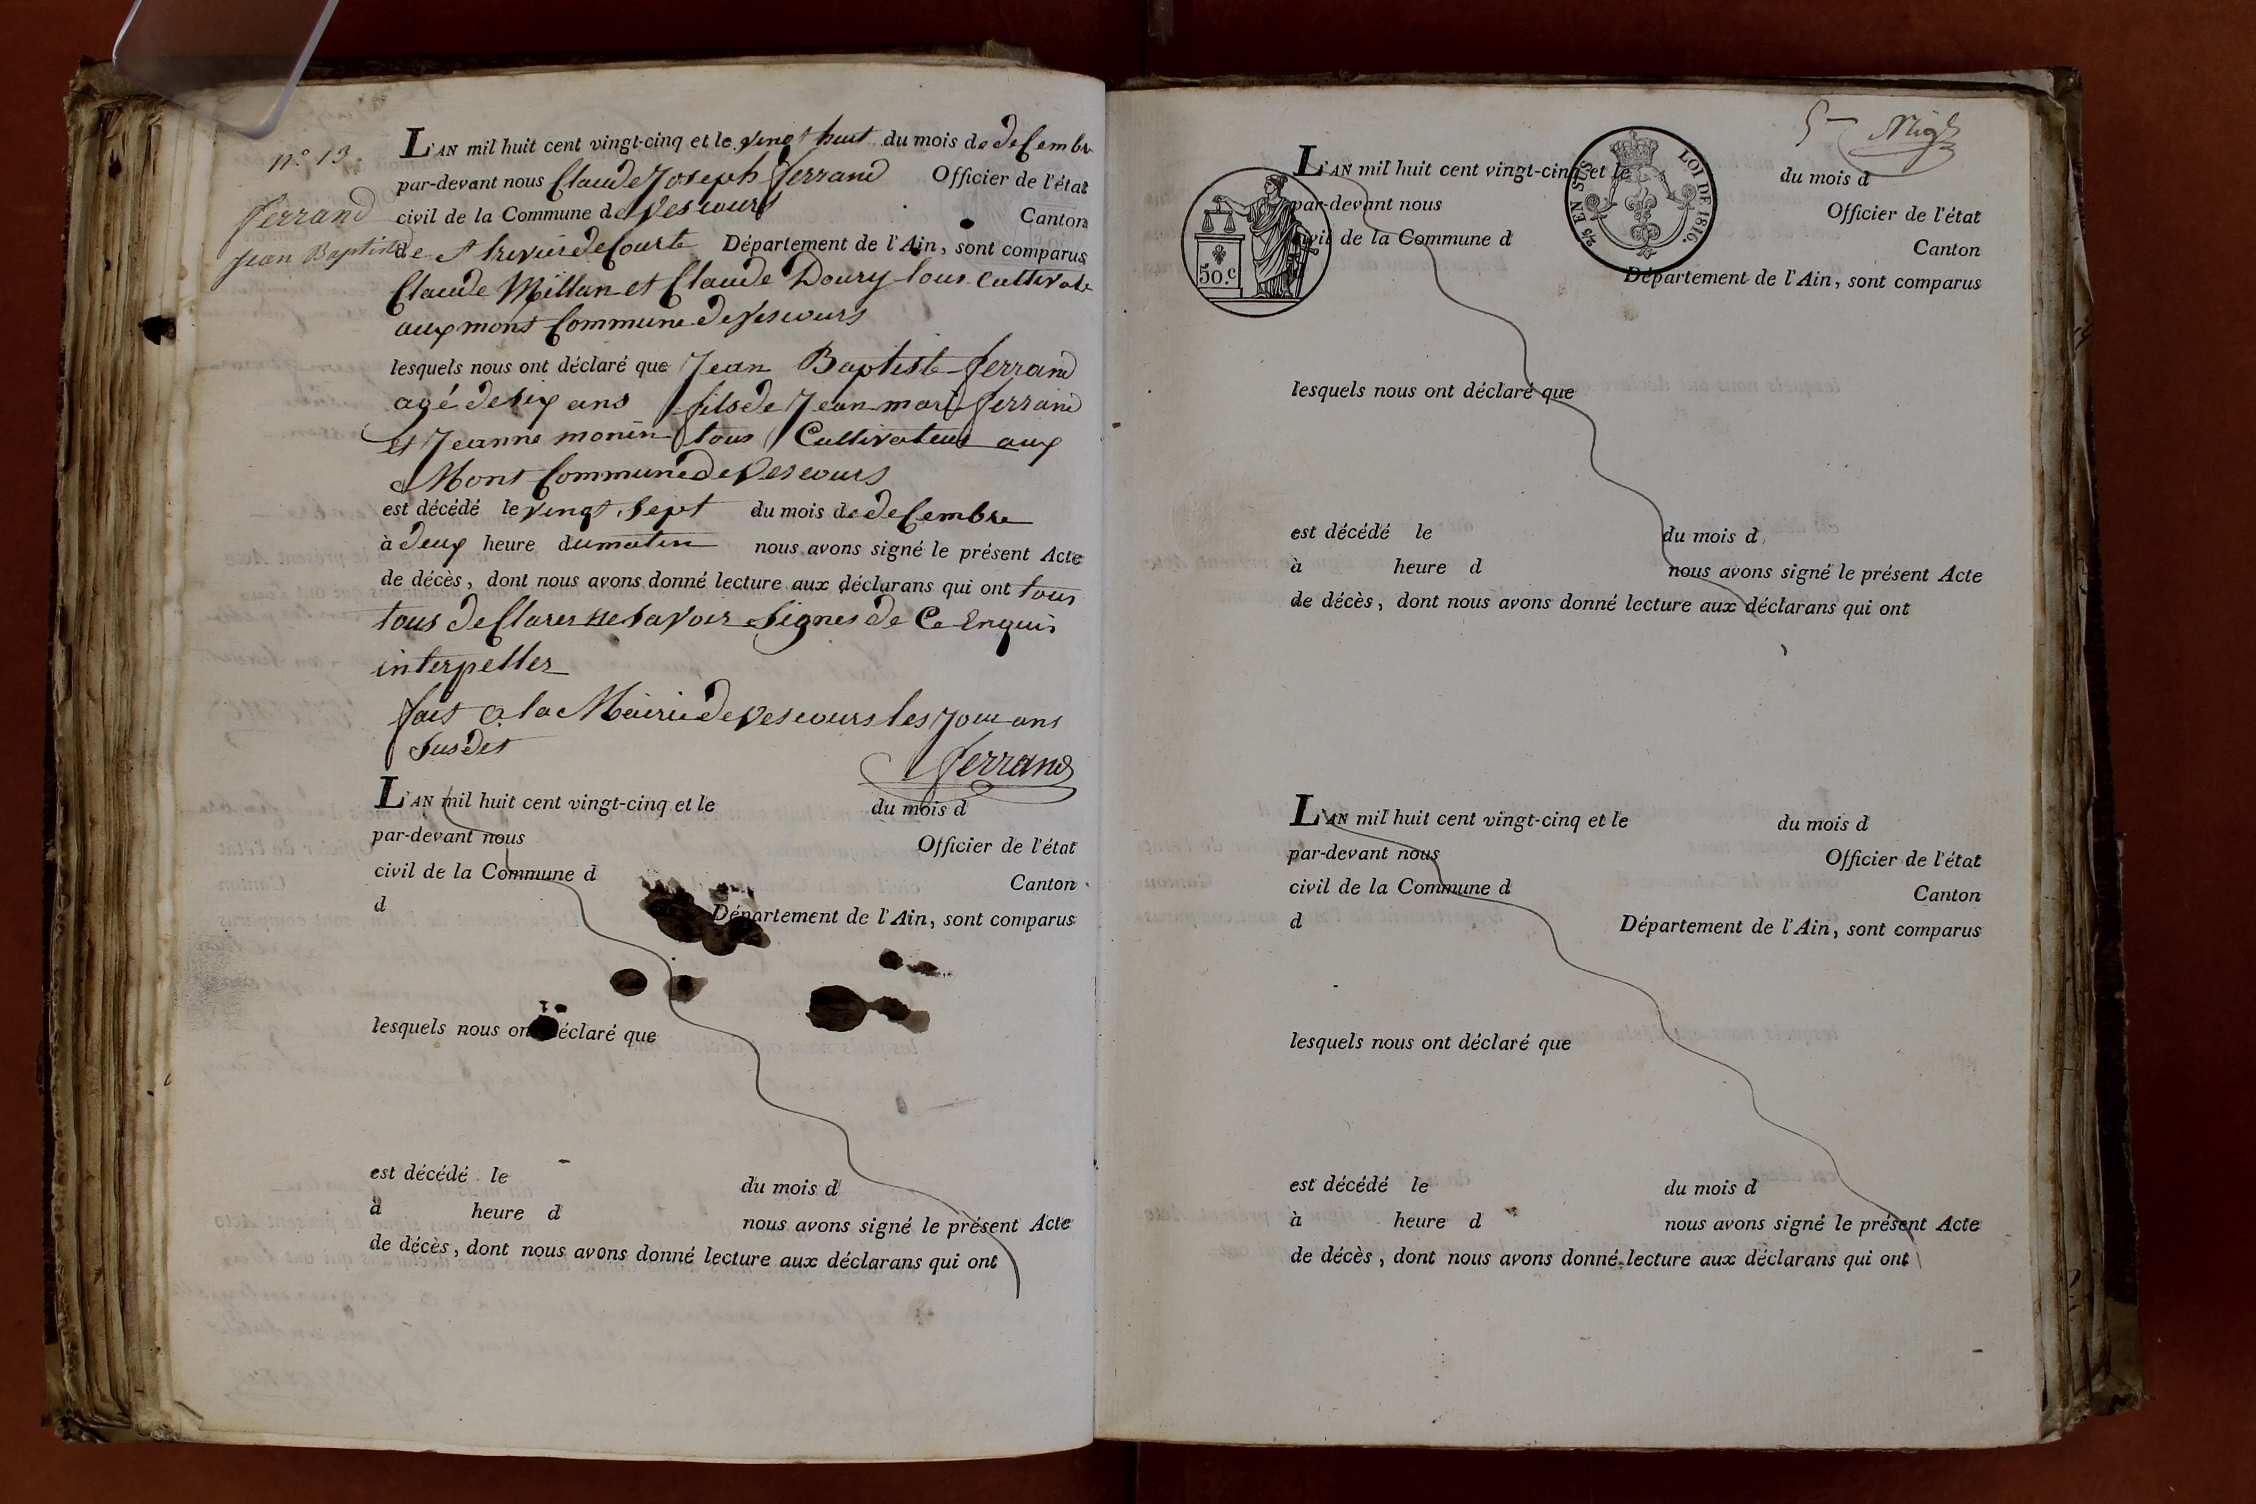 n.° 13
Ferrand
Jean Baptiste
L'AN mil huit cent vingt-cinq et le vingt huit du mois de deCembre
par-devant nous Claude Joseph ferrand Officier de l'état
civil de la Commune de Vescours Canton
de St trivier de Courte Département de l'Ain, sont comparus
Claude Millan et Claude Doury tous Cultivate
aux mont Commune de Vescours
lesquels nous ont déclaré que Jean Baptiste ferrand
agé de six ans fils de Jean mari ferrand
et Jeanne monin tous Cultivateur aux
Mont Commune de Vescours
est décédé le vingt sept du mois de deCembre
à deux heure du matin nous avons signé le présent Acte
de décès, dont nous avons donné lecture aux déclarans qui ont tous
tous deClarer ne savoir Signes de Ce Enquis
interpeller
fait a la Mairie de Vescours les Jour ans
Susdit
ferrand
L'AN mil huit cent vingt-cinq et le du mois d
par-devant nous Officier de l'état
civil de la Commune d Canton
d Département de l'Ain, sont comparus
lesquels nous ont déclaré que
est décédé le du mois d
à heure d nous avons signé le présent Acte
de décès, dont nous avons donné lecture aux déclarans qui ont
5
L'AN mil huit cent vingt-cinq et le du mois d
par-devant nous Officier de l'état
civil de la Commune d Canton
Département de l'Ain, sont comparus
50.c
EN SUS
LOI DE 1816.
lesquels nous ont déclaré que
est décédé le du mois d
à heure d nous avons signé le présent Acte
de décès, dont nous avons donné lecture aux déclarans qui ont
L'AN mil huit cent vingt-cinq et le du mois d
par-devant nous Officier de l'état
civil de la Commune d Canton
d Département de l'Ain, sont comparus
lesquels nous ont déclaré que
est décédé le du mois d
à heure d nous avons signé le présent Acte
de décès, dont nous avons donné lecture aux déclarans qui ont